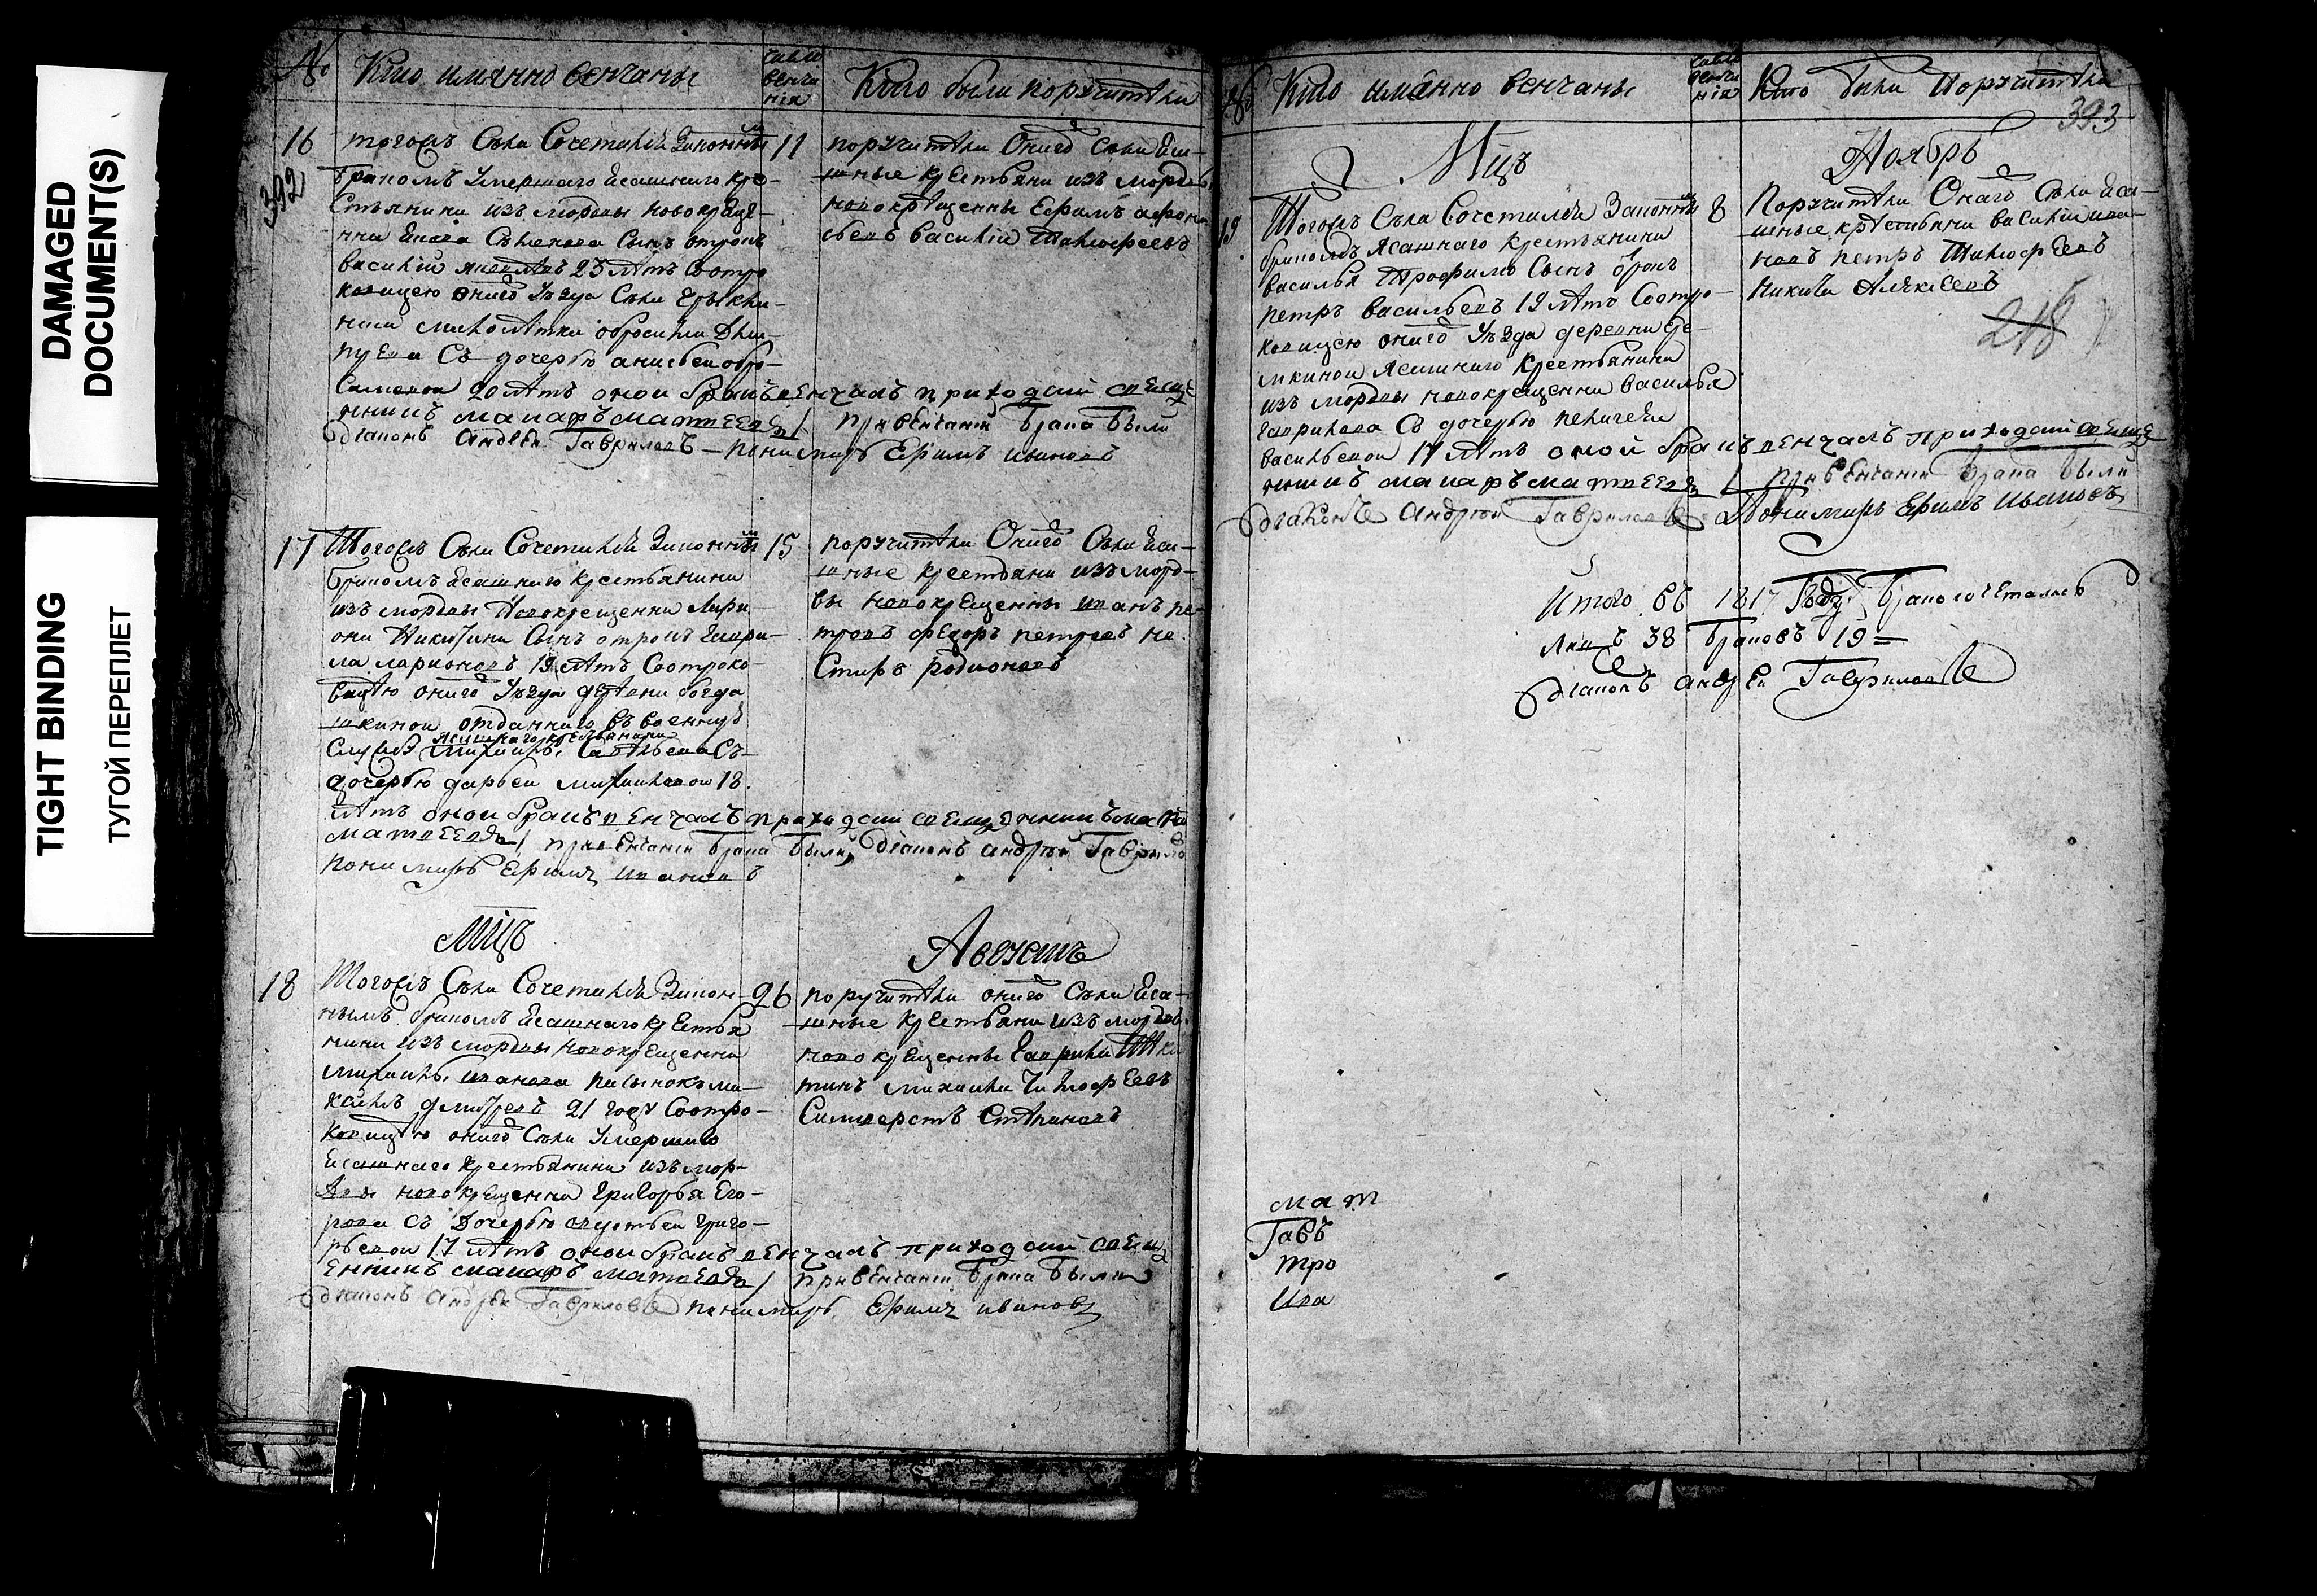 DAMAGED
DOCUMENT(S)
TIGHT BINDING
ТУГОЙ ПЕРЕПЛЕТ
№ Кто имянно венчаны
число венча нія
Кто были поручители
392
16 тогожъ Села Сочетался Законнымъ 11
бракомъ умершаго Ясашнаго кре-
стьянина изъ мордвы новокреще-
на Сынъ отрокъ
василій яковлевъ 23 летъ Соотро-
ковицею онаго уезда Села
с дочерью анисьей
20 летъ оной бракъ венчалъ приходской свяще
нникъ макаръ матвеевъ / При венчаніи брака были
діаконъ Андрей Гавриловъ – пономарь Ефимъ ивановъ
поручители Онаго Села Яса-
шные крестьяни изъ мордвы
новокрещенны Ефимъ афона
сьевъ василій Тимофеевъ
17 Тогожъ Села Сочетался Законнымъ 15
бракомъ Ясашнаго крестьянина
изъ мордвы Новокрещенна Лари-
она Никитина Сынъ отрокъ Гаври-
ла ларионовъ 19 летъ Соотроко-
вицею онаго уезда деревни богда
шкиной отданнаго въ военную
Ясашнаго крестьянина
Службу Михаилы Савельева Съ
дочерью дарьей михайловой 18.
летъ оной бракъ венчалъ приходской священникъ мака
матвеевъ / При венчаніи брака были, діаконъ андрей Гаврило
пономарь Ефимъ ивановъ
поручители Онаго Села Яса-
шные крестьяни изъ морд-
вы новокрещенны иванъ пе-
тровъ федоръ петровъ не
стиръ родионовъ
Мцъ Августъ
18 Тогожъ Села Сочетался Закон- 26
нымъ бракомъ Ясашнаго крестья
нина изъ мордвы новокрещенна
михаилы иванова пасынокъ ми-
хаилъ дмитревъ 21 году Соотро-
ковицею онаго Села умершаго
Ясашнаго крестьянина изъ мор-
двы новокрещенна григорья Его-
рова съ дочерью авдотьей григо-
рьевой 17 летъ оной бракъ венчалъ приходской свящ
енникъ макаръ матвеевъ / При венчаніи брака были
діаконъ Андрей Гавриловъ пономарь Ефимъ ивановъ
поручители онаго Села Яса-
шные крестьяни изъ мордвы
новокрещенны гаврила
михаила тимофеевъ
Степановъ
№ Кто имянно венчаны
число венча нія
Кто были Поручители
393
Мцъ Ноябрь
19 Тогожъ Села Сочетался Законнымъ 8
бракомъ Ясашнаго крестьянина
василья Трофимова Сынъ отрокъ
петръ васильевъ 19 летъ Соотро-
ковицею онаго уезда деревни
Ясашнаго крестьянина
изъ мордвы новокрещенна василья
гаврилова Съ дочерью пелагеей
васильевой 17 летъ оной бракъ венчалъ приходской свяще
нникъ макаръ матвеевъ / При венчаніи брака были
діаконъ Андрей Гавриловъ Пономарь Ефимъ Ивановъ
Поручители Онаго Села Яса-
шные крестьяни василій ива-
новъ петръ Тимофеевъ
никита Алексеевъ
218
Итого въ 1817 Году Бракосочеталось
Лицъ 38 браковъ 19=
діаконъ андрей Гавриловъ
мат
Гавъ
тро
Ива